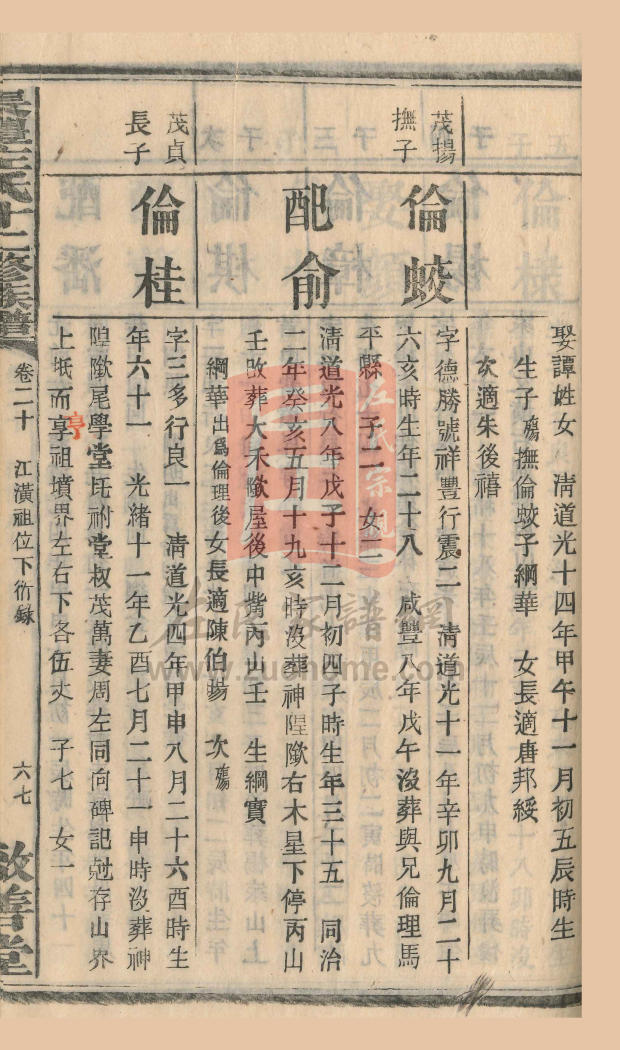 娶譚姓女 清道光十四年甲午十一月初五辰時生
生子殤撫倫蛟子綱華 女長適唐邦綏
次適朱後禧
茂揚
撫子
倫蛟
字德勝號祥豐行震二 清道光十一年辛卯九月二十
六亥時生年二十八 咸豐八年戊午沒葬與兄倫理馬
平縣 子二 女二
配俞
清道光八年戊子十二月初四子時生年三十五 同治
二年癸亥五月十九亥時沒葬神隍歞右木星下停丙山
壬改葬大禾歞屋後中嘴丙山壬 生綱實
綱華出爲倫理後女長適陳伯暘 次殤
茂貞
長子
倫桂
字三多行良一 清道光四年甲申八月二十六酉時生
年六十一 光緒十一年乙酉七月二十一申時沒葬神
隍歞尾學堂㘰祔堂叔茂萬妻周左同向碑記尅存山界
上坻而享祖墳界左右下各伍丈 子七 女一
亭
左氏十二修族譜
卷二十
江潢祖位下衍錄
六七
敦善堂
左氏宗親
左氏家譜網
www.zuohome.com